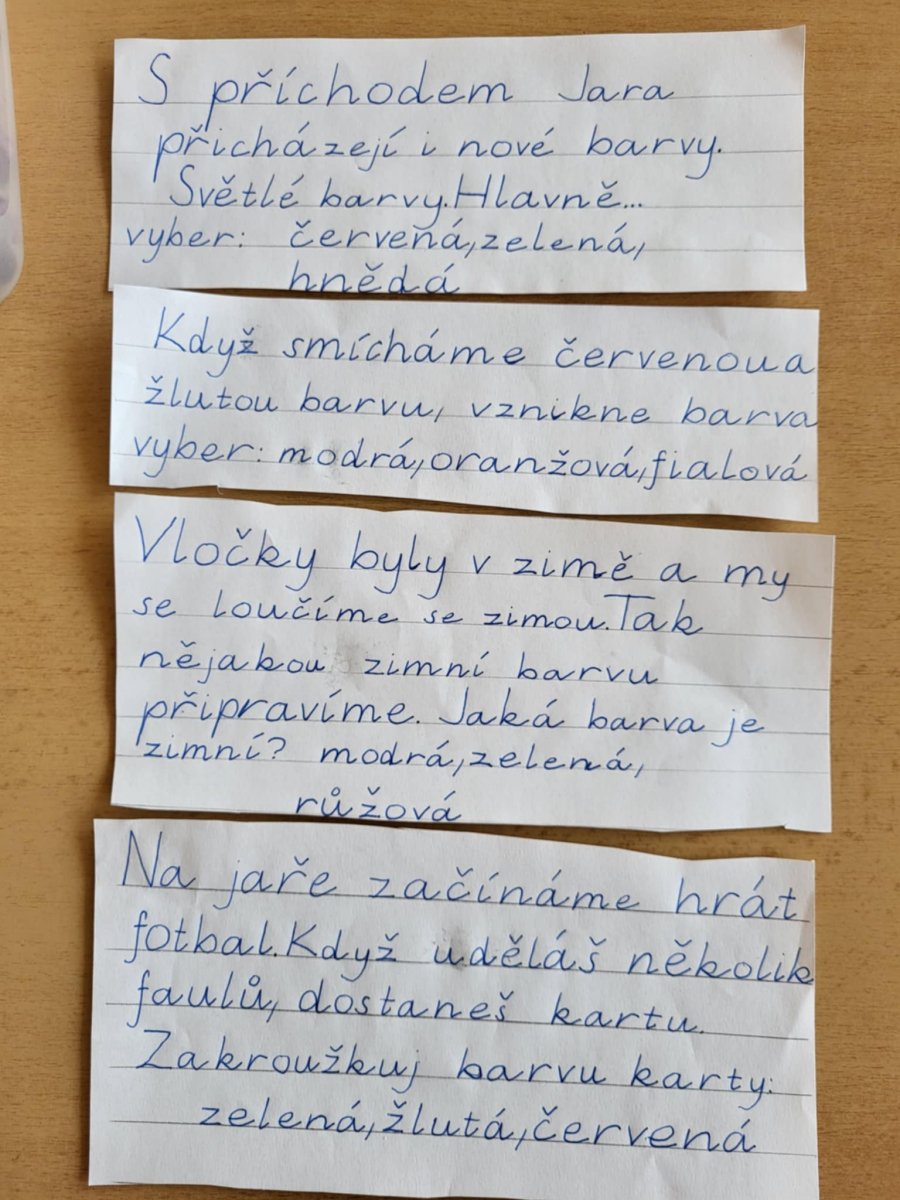 S příchodem Jara
přicházejí i nové barvy.
Světlé barvy. Hlavně...
vyber: červená, zelená,
hnědá
Když smícháme červenou a
žlutou barvu, vznikne barva
vyber: modrá, oranžová, fialová
Vločky byly v zimě a my
se loučíme se zimou. Tak
nějakou zimní barvu
připravíme. Jaká barva je
zimní? modrá, zelená,
růžová
Na jaře začínáme hrát
fotbal. Když uděláš několik
faulů, dostaneš kartu.
Zakroužkuj barvu karty:
zelená, žlutá, červená